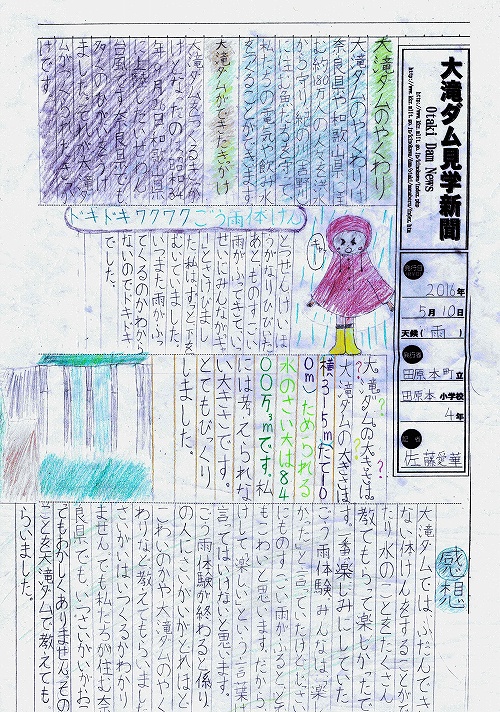 大滝ダム見学新聞
Otaki Dam News
発行日
2016年
5月10日
天候(雨)
発行者
田原本町立
田原本小学校
4年
佐藤愛華
大滝ダムのやくわり
大滝ダムのやくわりは
奈良県や和歌山県に住
む約80万人の人を洪水
から守り
私たちの電気や飲み水
大滝ダムができたきっかけ
大滝ダムをつくるきっか
けとなったのは昭和34
年9月26日
台風です。奈良県でも
ました。
けです。
ドキドキワクワクごう雨体けん
とつぜんけいほ
うがなりひびいた
あとものすごい
雨がふってきてい
せいにみんながキャ
ーとさけびまし
た。私はずっと下を
むいていました。
いつまた雨がふっ
てくるのかわから
ないのでドキドキ
でした。
キャー
大滝ダムの大きさは。
大滝ダムの大きさは
横315mたて10
0m)ためられる
水のさい大は84
00万m³です。私
には考えられな
い大きさです。
とてもびっくり
しました。
感想
大滝ダムでは、ふだんでき
ない体けんをすることがで
きたり水のことをたくさん
教えてもらって楽しかったで
す。一番楽しみにしていた
ごう雨体験みんなは「楽し
かった」と言っていたけどじっさい
にものすごい雨がふるととて
もこわいと思います。だから
けして「楽しい」という言葉は
言ってはいけないと思います。
ごう雨体験が終わると係り
の人にさいがいがどれほど
こわいのかや大滝ダムのやく
わりなど教えてもらいました。
さいがいはいつくるかわかり
ませんでも私たちが住む奈
良県でも、いつさいがいがお
てもおかしくありません。その
ことを大滝ダムで教えても
らいました。